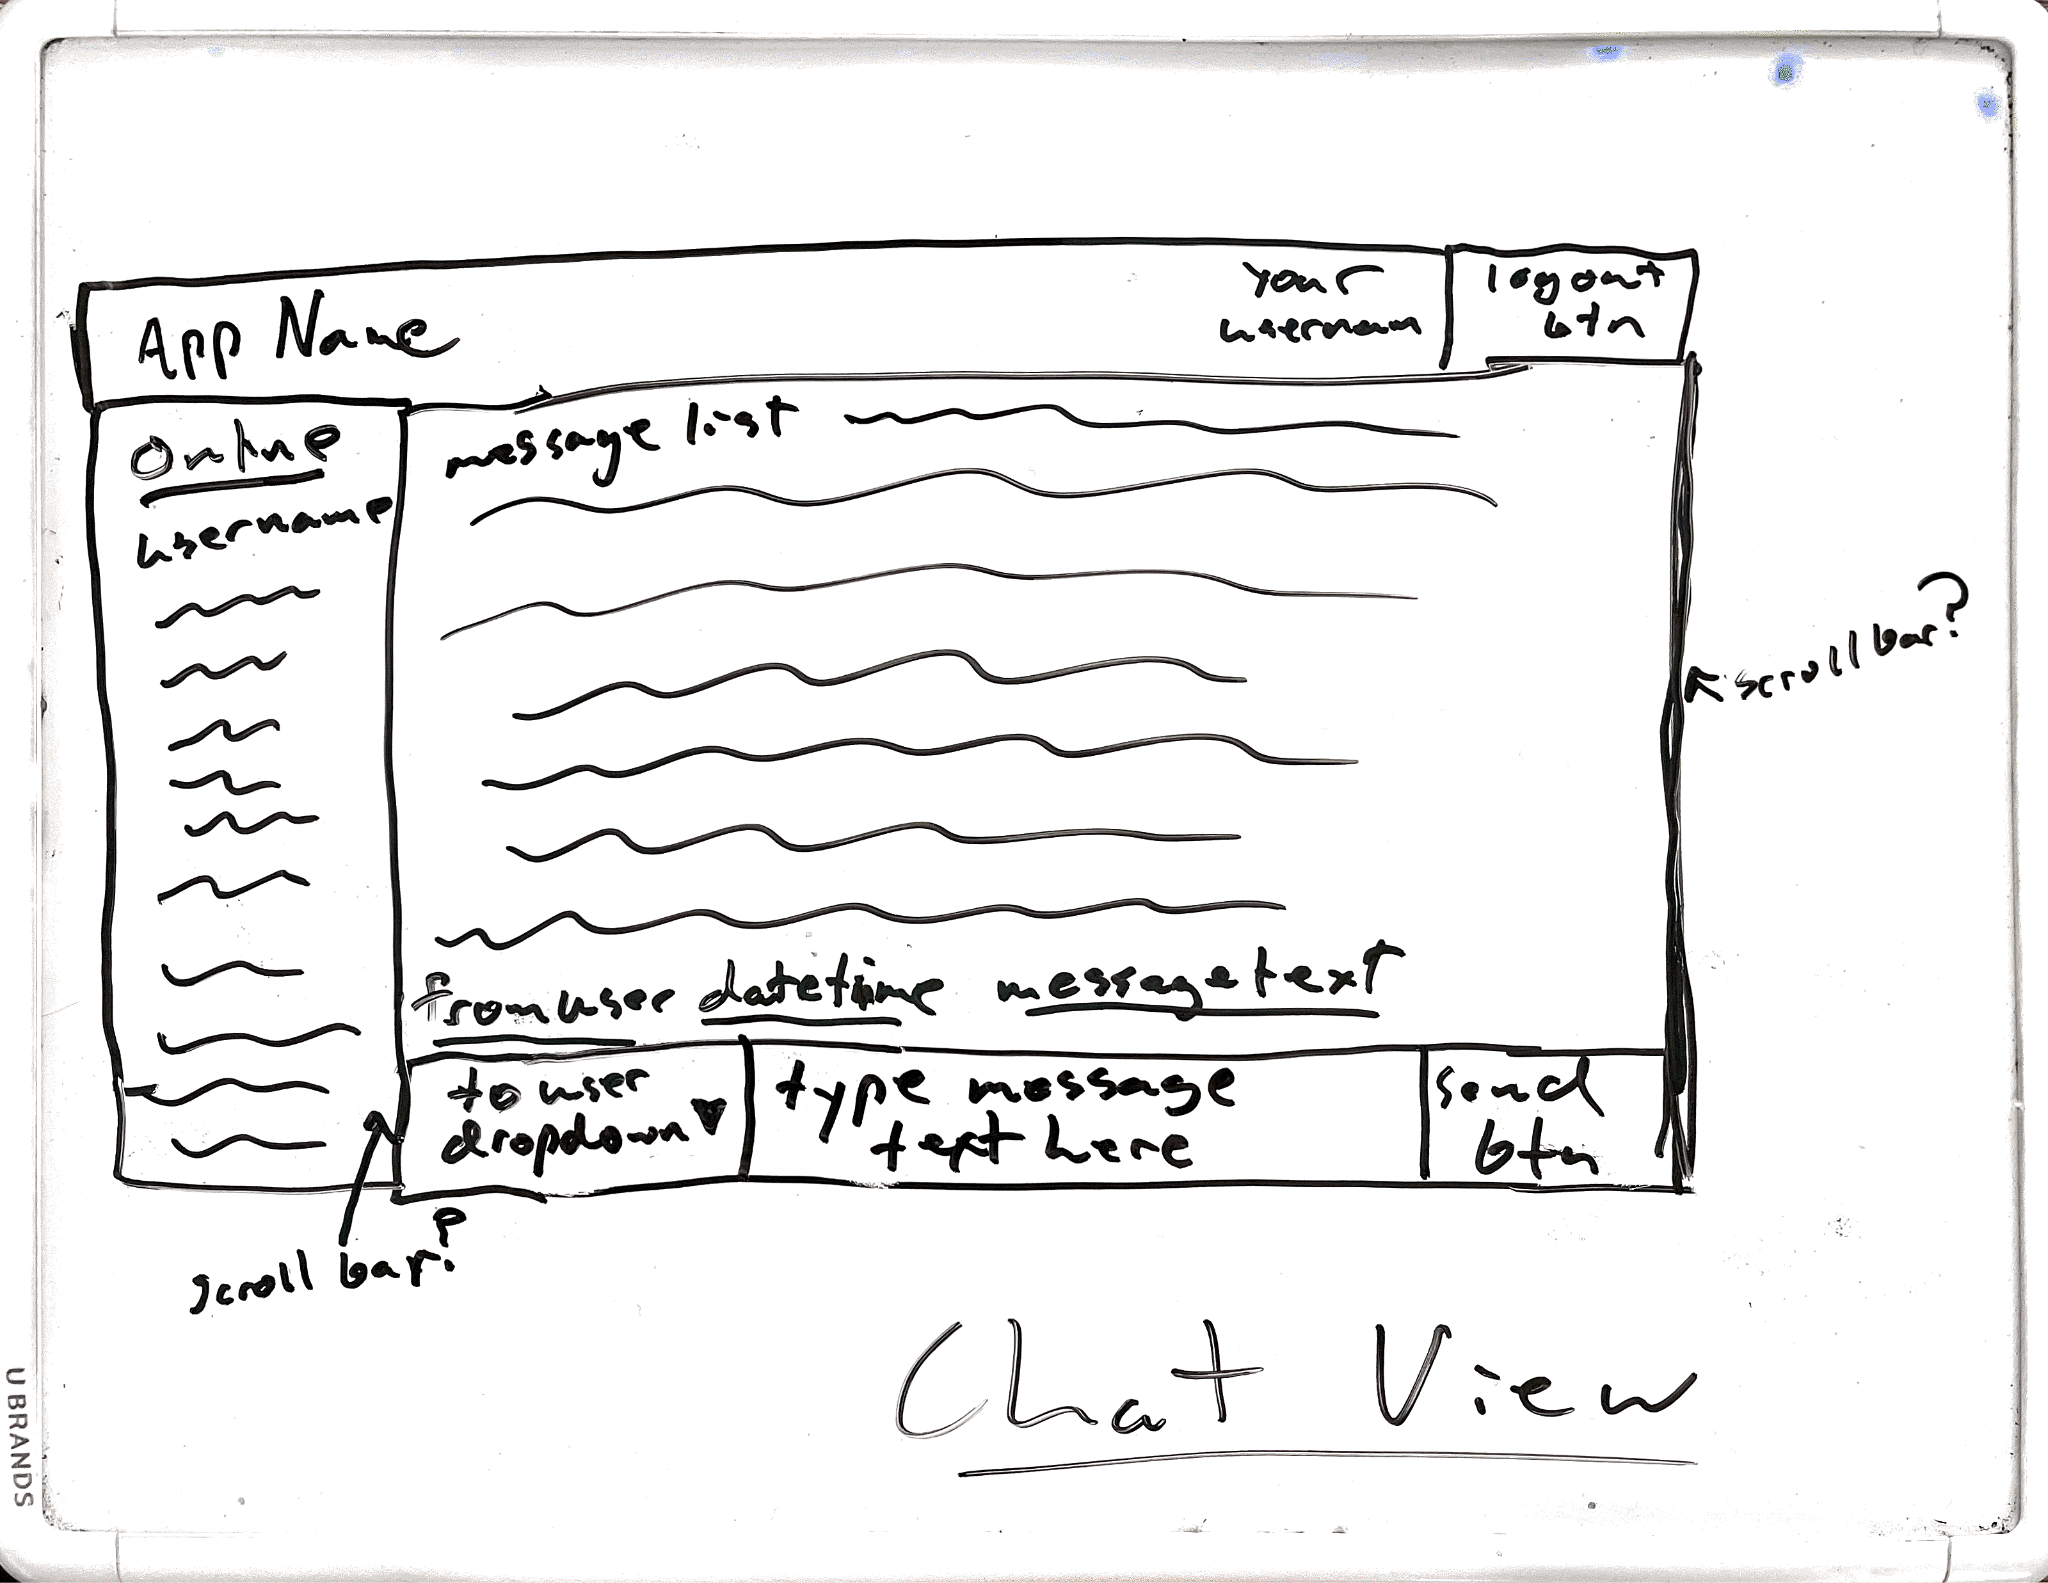 App Name
your
usernam
logout
btn
Online
username
message list
scroll bar?
from user datetime message text
to user
dropdown
type message
text here
send
btn
scroll bar?
Chat View
U BRANDS